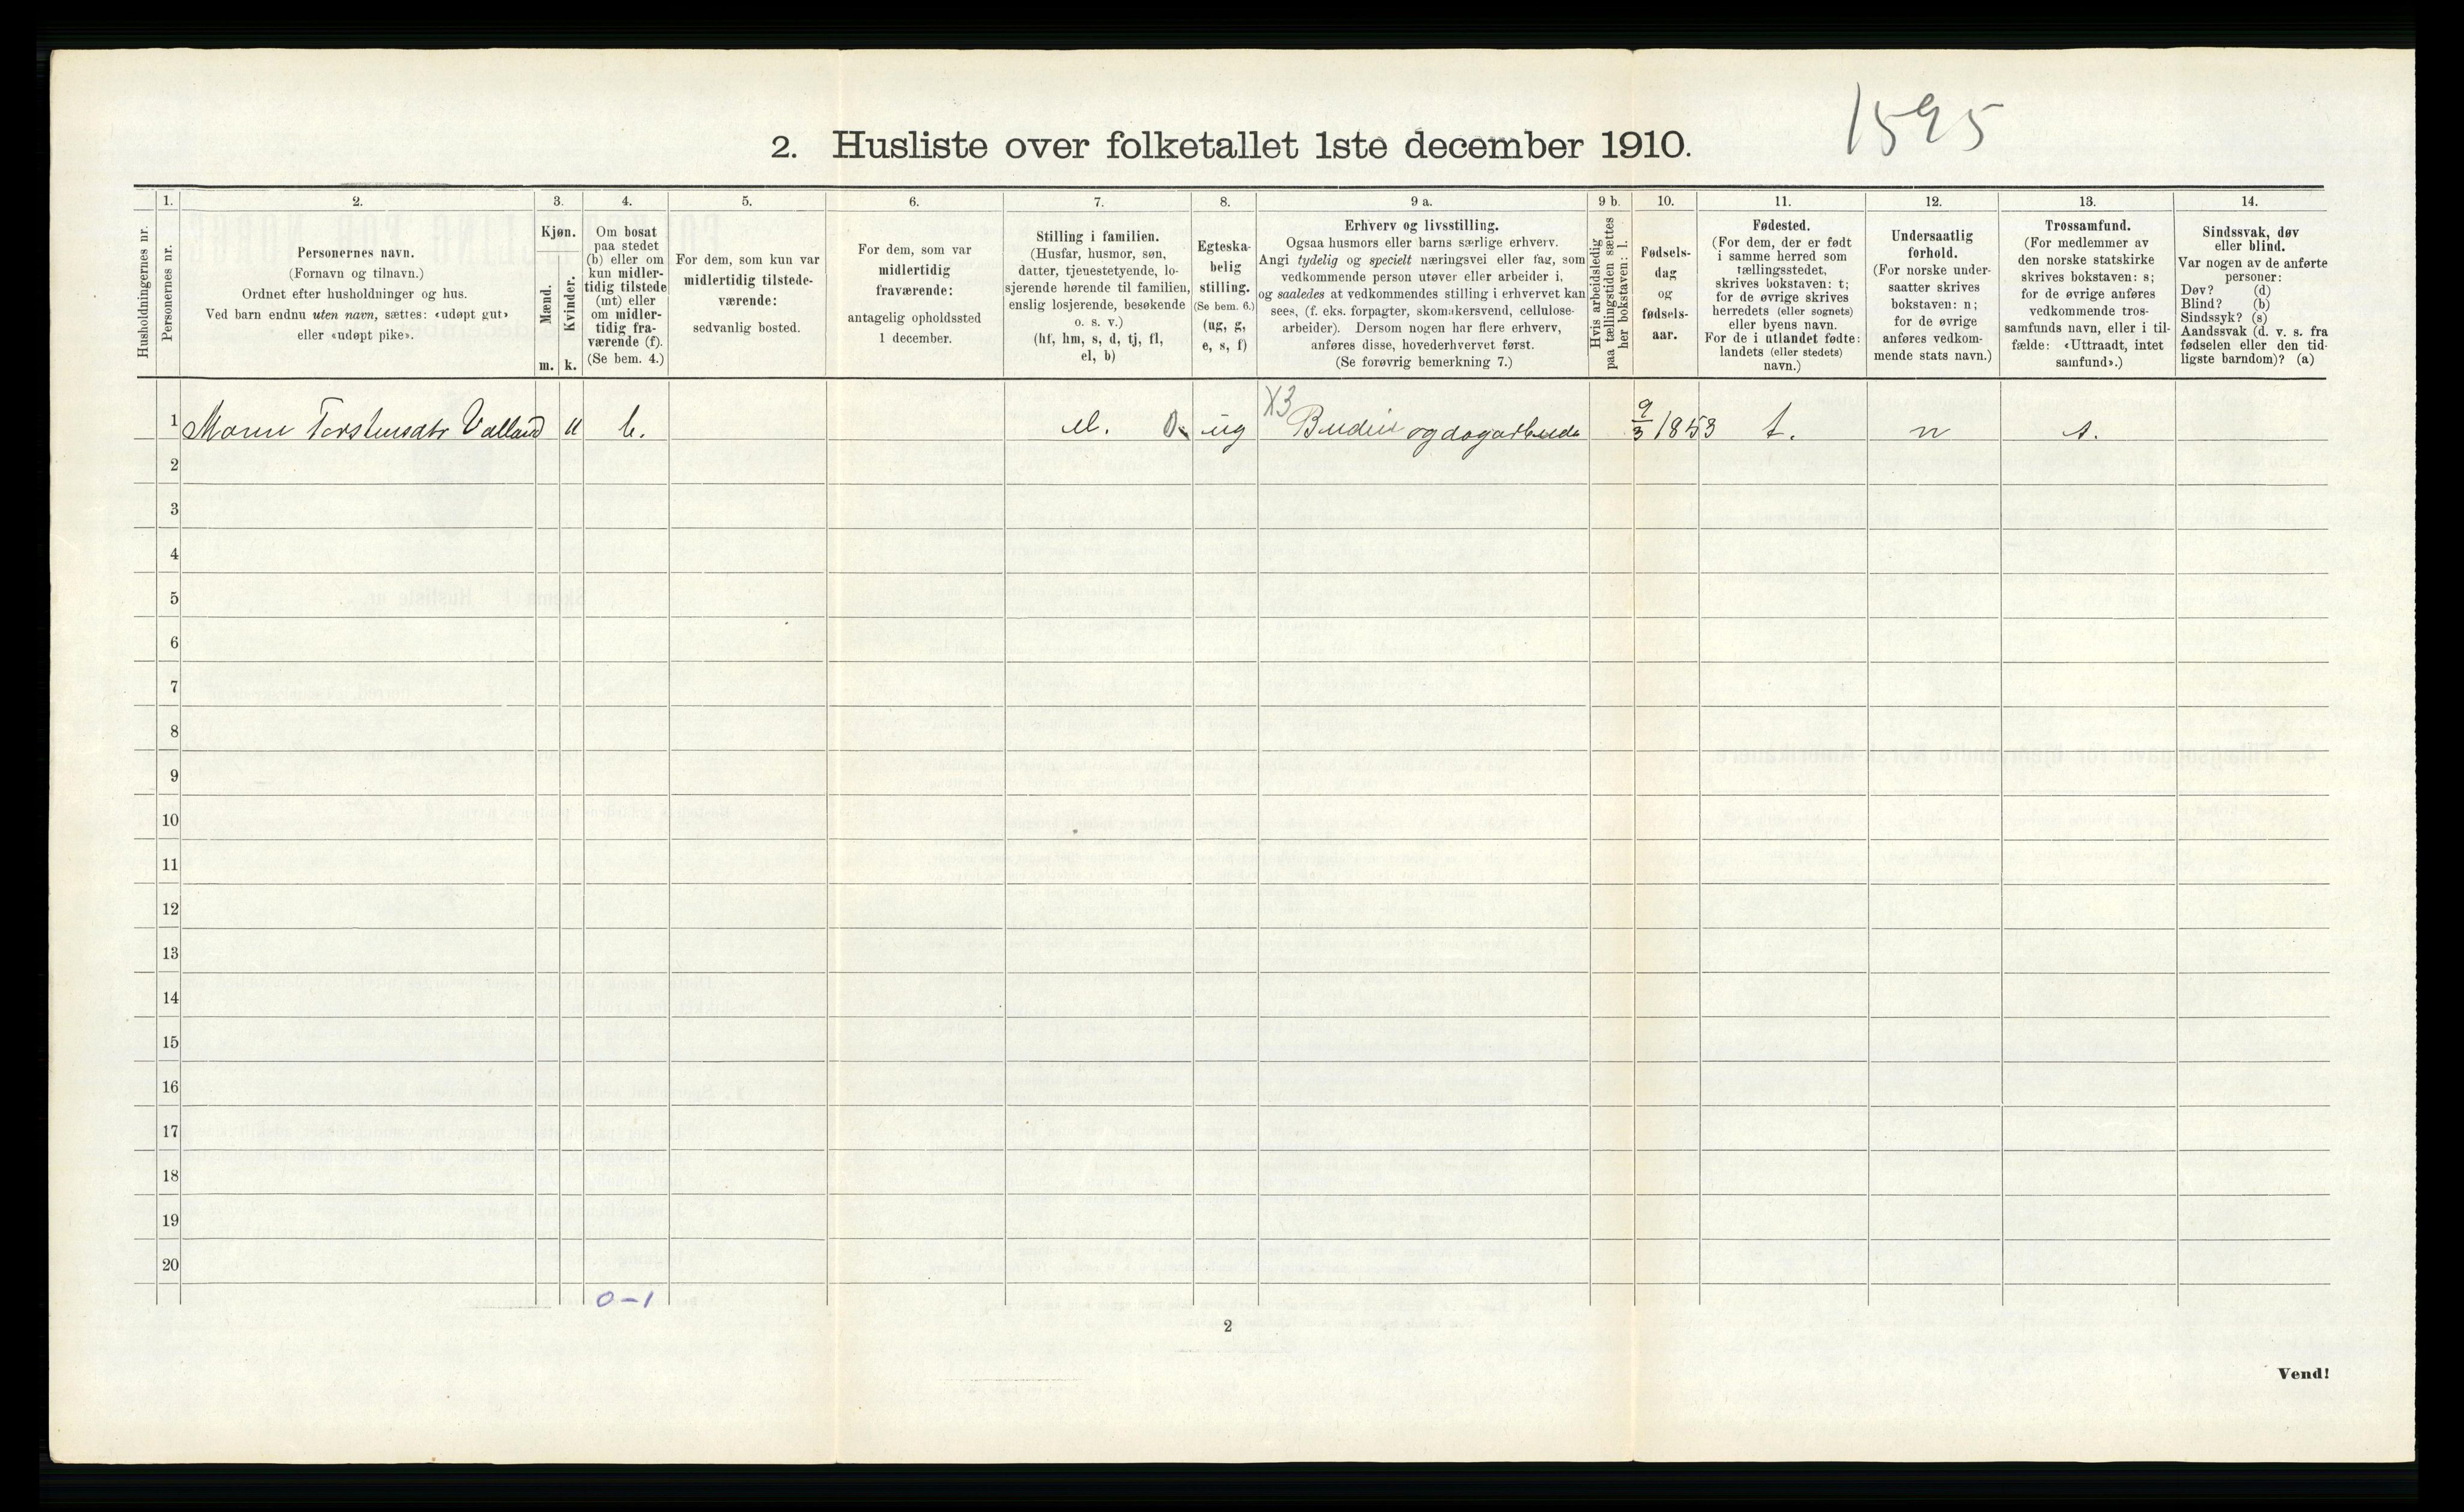 1595
2. Husliste over folketallet 1ste december 1910.
Husholdningernes nr.
1.
Personernes nr.
2.
Personernes navn.
(Fornavn og tilnavn.)
Ordnet efter husholdninger og hus.
Ved barn endnu uten navn, sættes: «udøpt gut»
eller «udøpt pike».
3.
Kjøn.
Mænd.
Kvinder.
m. k.
4.
Om bosat
paa stedet
(b) eller om
kun midler-
tidig tilstede
(mt) eller
om midler-
tidig fra-
værende (f).
(Se bem. 4.)
5.
For dem, som kun var
midlertidig tilstede-
værende:
sedvanlig bosted.
6.
For dem, som var
midlertidig
fraværende:
antagelig opholdssted
1 december.
7.
Stilling i familien.
(Husfar, husmor, søn,
datter, tjenestetyende, lo-
sjerende hørende til familien,
enslig losjerende, besøkende
o. s. v.)
(hf, hm, s, d, tj, fl,
el, b)
8.
Egteska-
belig
stilling.
(Se bem. 6.)
(ug, g,
e, s, f)
9 a.
Erhverv og livsstilling.
Ogsaa husmors eller barns særlige erhverv.
Angi tydelig og specielt næringsvei eller fag, som
vedkommende person utøver eller arbeider i,
og saaledes at vedkommendes stilling i erhvervet kan
sees, (f. eks. forpagter, skomakersvend, cellulose-
arbeider). Dersom nogen har flere erhverv,
anføres disse, hovederhvervet først.
(Se forøvrig bemerkning 7.)
9 b.
Hvis arbeidsledig
paa tællingstiden sættes
her bokstaven: l.
10.
Fødsels-
dag
og
fødsels-
aar.
11.
Fødested.
(For dem, der er født
i samme herred som
tællingsstedet,
skrives bokstaven: t;
for de øvrige skrives
herredets (eller sognets)
eller byens navn.
For de i utlandet fødte:
landets (eller stedets)
navn.)
12.
Undersaatlig
forhold.
(For norske under-
saatter skrives
bokstaven: n;
for de øvrige
anføres vedkom-
mende stats navn.)
13.
Trossamfund.
(For medlemmer av
den norske statskirke
skrives bokstaven: s;
for de øvrige anføres
vedkommende tros-
samfunds navn, eller i til-
fælde: «Uttraadt, intet
samfund».)
14.
Sindssvak, døv
eller blind.
Var nogen av de anførte
personer:
Døv? (d)
Blind? (b)
Sindssyk? (s)
Aandssvak (d. v. s. fra
fødselen eller den tid-
ligste barndom)? (a)
X3
1 Torstensdtr b. el. ug Budeie og dagarbeide 9/3 1853 t. n s.
2
3
4
5
6
7
8
9
10
11
12
13
14
15
16
17
18
19
20
0-1
2
Vend!